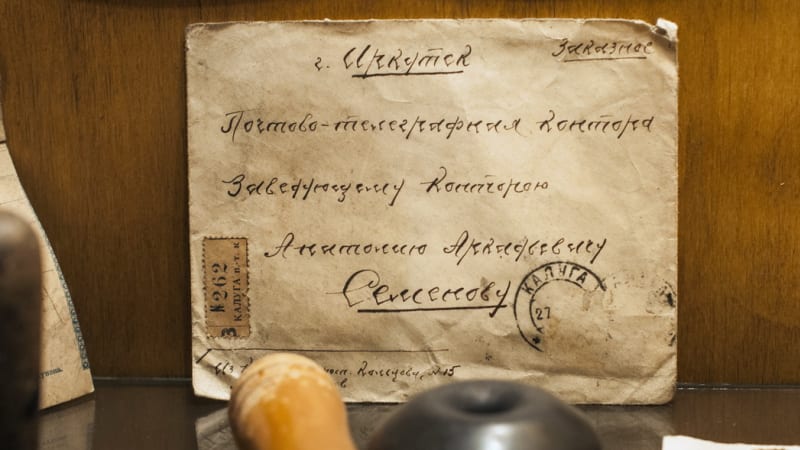 г. Иркутск
Заказное
Почтово-телеграфная контора
Заведующему Конторою
Анатолию Аркадьевичу
Семенову
З №262
КАЛУГА п. т. к.
КАЛУГА
27
Из №15